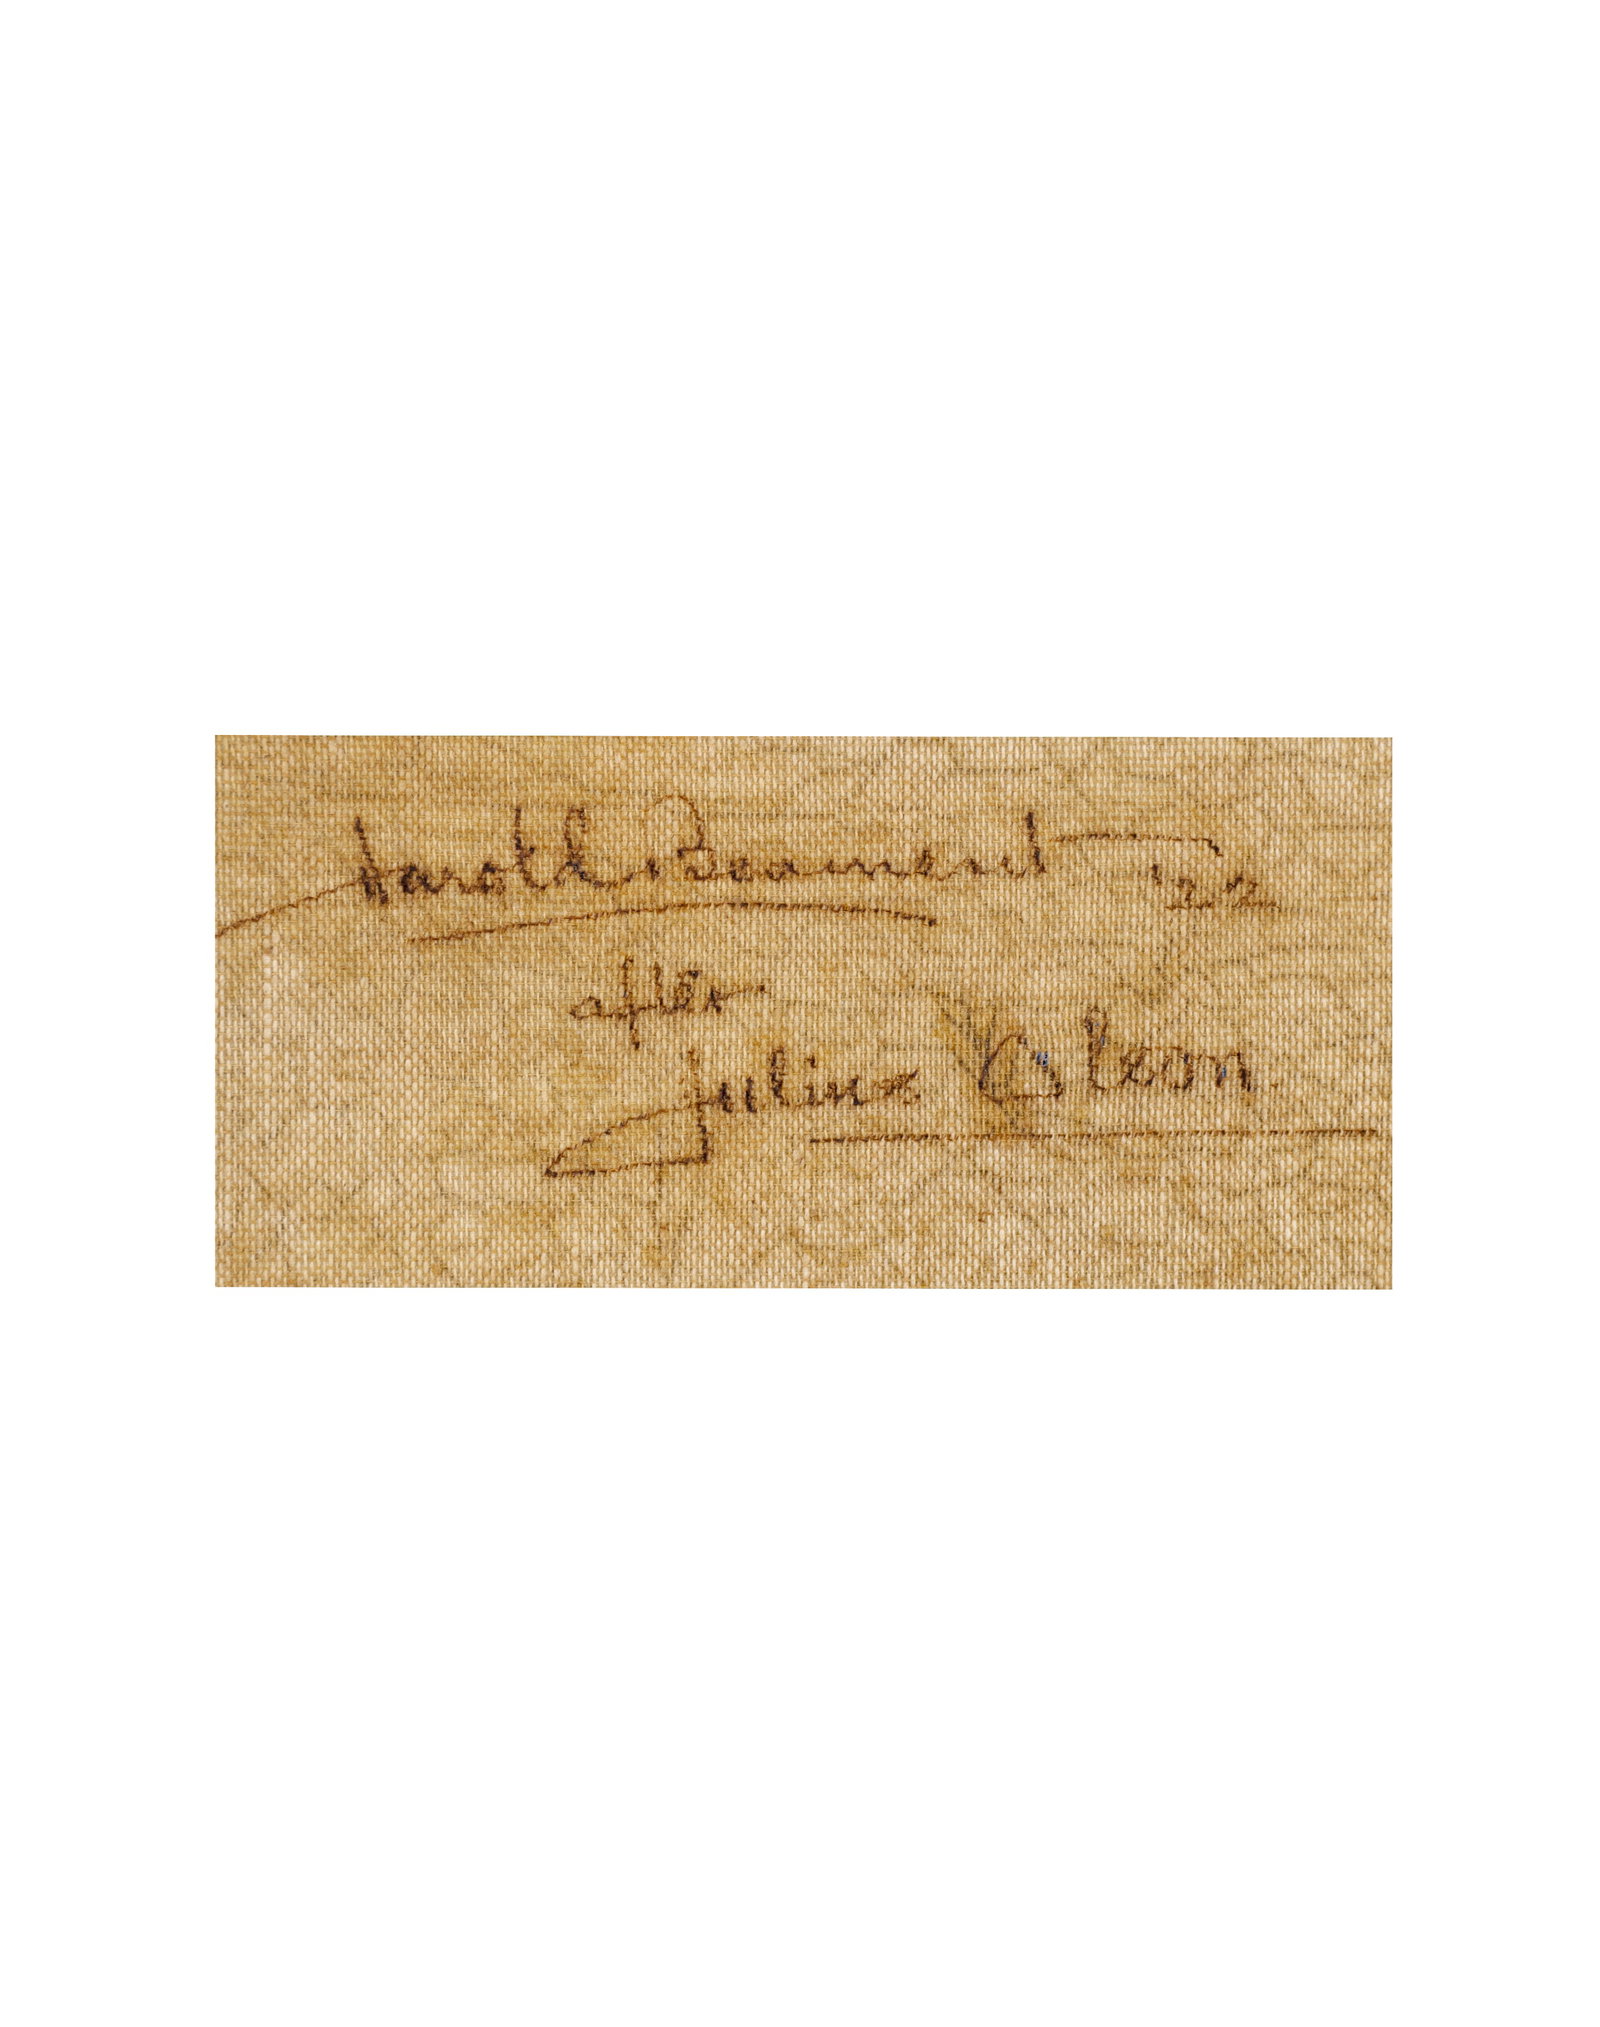 Harold Beament '22
after
Julius Olsson